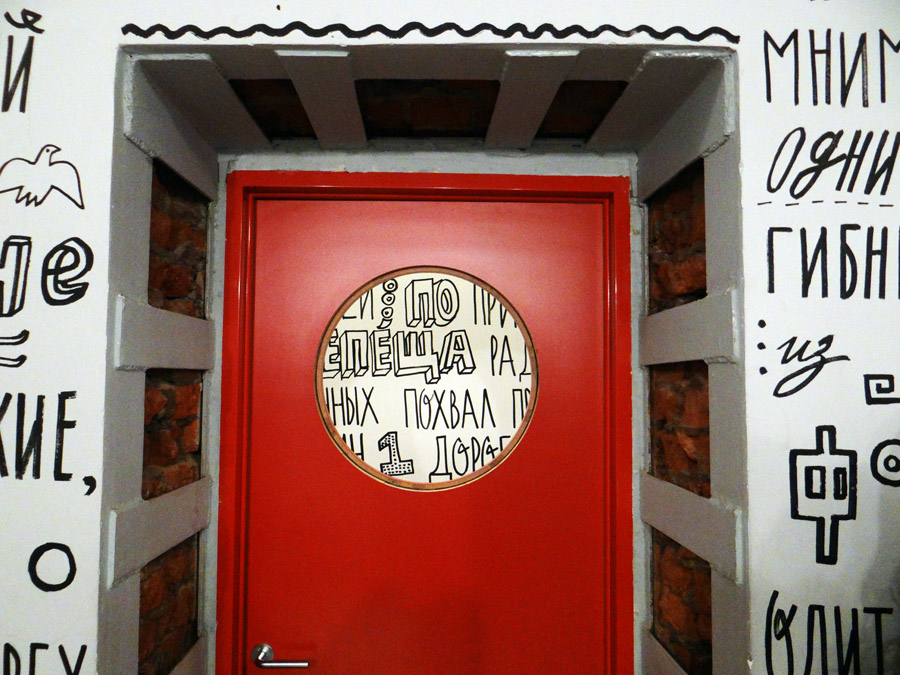 Й
не
КИЕ,
О
РЕХ
ЕЙ : ПО ПРИ
ЕПЕЩА РАД
ННЫХ ПОХВАЛ П
1 ДОРОГ
МНИМ
одни
ГИБН
: из
ОДИТ